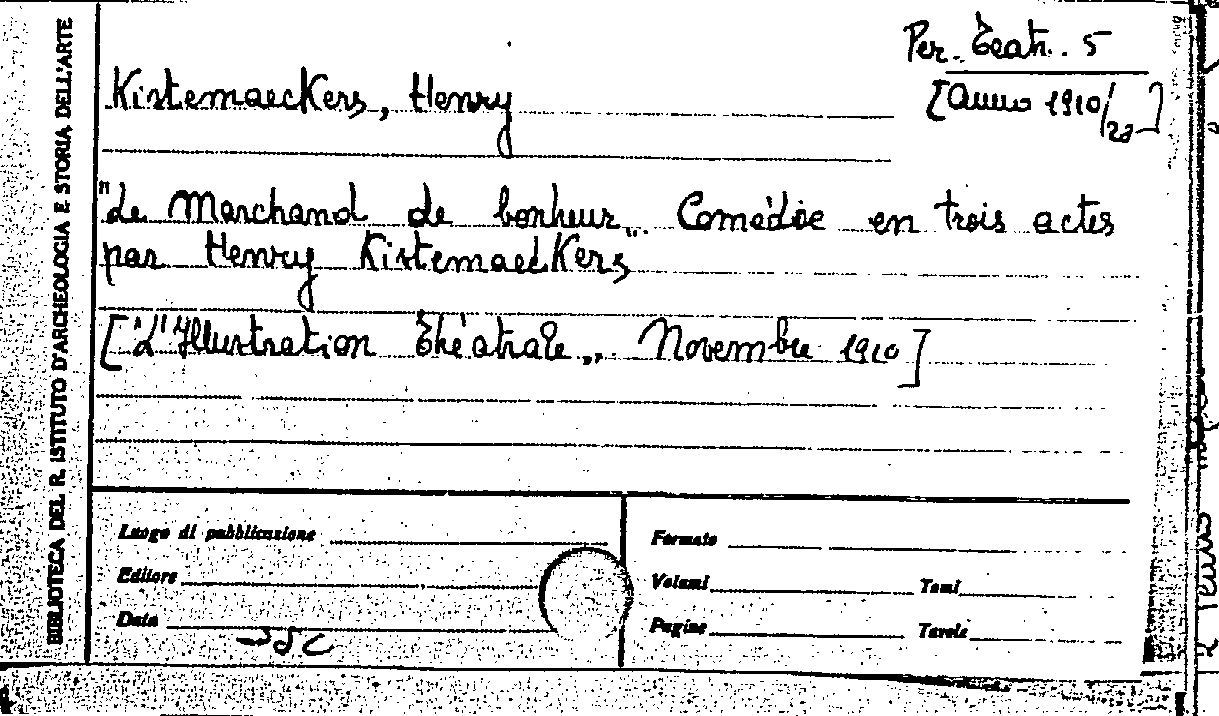 BIBLIOTECA DEL R. ISTITUTO D'ARCHEOLOGIA E STORIA DELL'ARTE
Per. Teatr. 5
[Anno 1910/22]
Kistemaeckers, Henry
"Le Marchand de bonheur„. Comédie en trois actes
par Henry Kistemaeckers
["L'Illustration Théatrale„ Novembre 1910]
Luogo di pubblicazione
Editore
Data
Formato
Volumi Tomi
Pagine Tavole